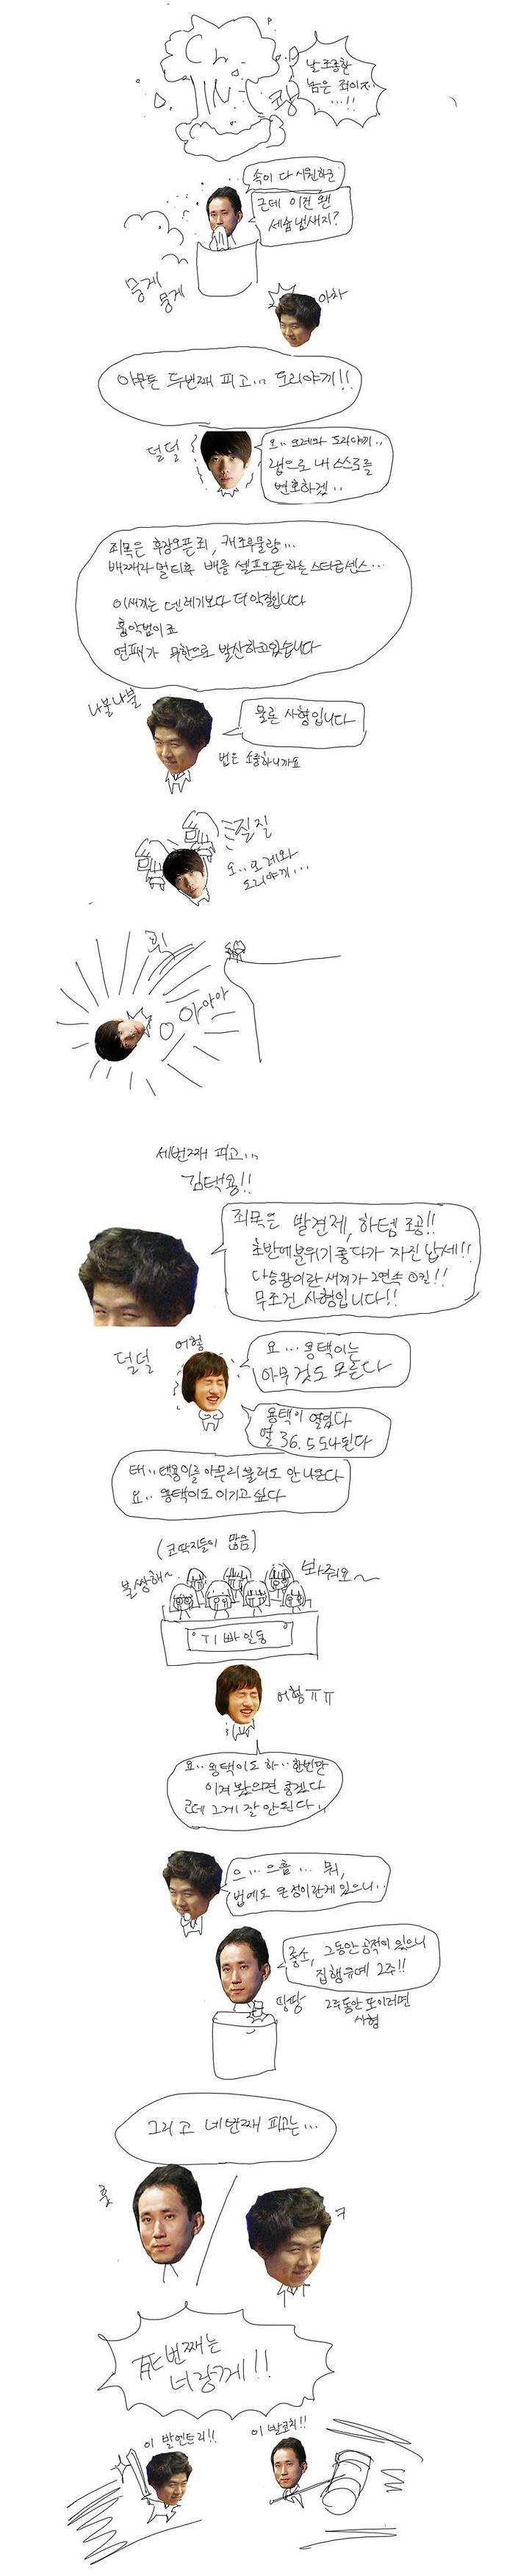 날 조롱한
놈은 죄이지..
...!!
쾅
속이 다 시원하군
근데 이건 왠
세슘냄새지?
뭉게
뭉게
아차
아무튼 두번째 피고... 도리야끼!!
덜덜
오.. 오레와 도리야끼..
랩으로 내 스스로를
변호하겠..
죄목은 후장오픈죄,
배째라 멀티후 배를 셀프오픈하는 스타급센스...
이새끼는 덴레기보다 더 악질입니다
흉악범이죠
연패가 무한으로 발산하고있습니다
나불나불
물론 사형입니다
법은 소중하니까요
질질
오..오레와
도리야끼...
아아아
세번째 피고...
김택용!!
죄목은 발견제, 하템 조공!!
초반에분위기좋다가 자진납세!!
다승왕이란 새끼가 2연속 0킬!!
무조건 사형입니다!!
덜덜
어헝
요... 용택이는
아무것도 모른다
용택이 열있다
열 36.5도나된다
태..택용이를아무리불러도 안나온다
요.. 용택이도 이기고 싶다
(코딱지들이 많음)
불쌍해~
봐줘요~
T1빠일동
어헝ㅠㅠ
요..용택이도 하..한번만
이겨봤으면 좋겠다
근데 그게 잘 안된다..
으...으흠... 뭐,
법에도 온정이란게있으니..
좋소, 그동안 공적이 있으니
집행유예 2주!!
땅땅
2주동안 또이러면
사형
그리고 네번째 피고는...
훗
ㅋ
死번째는
너랑께!!
이 발엔트리!!
이 발코치!!